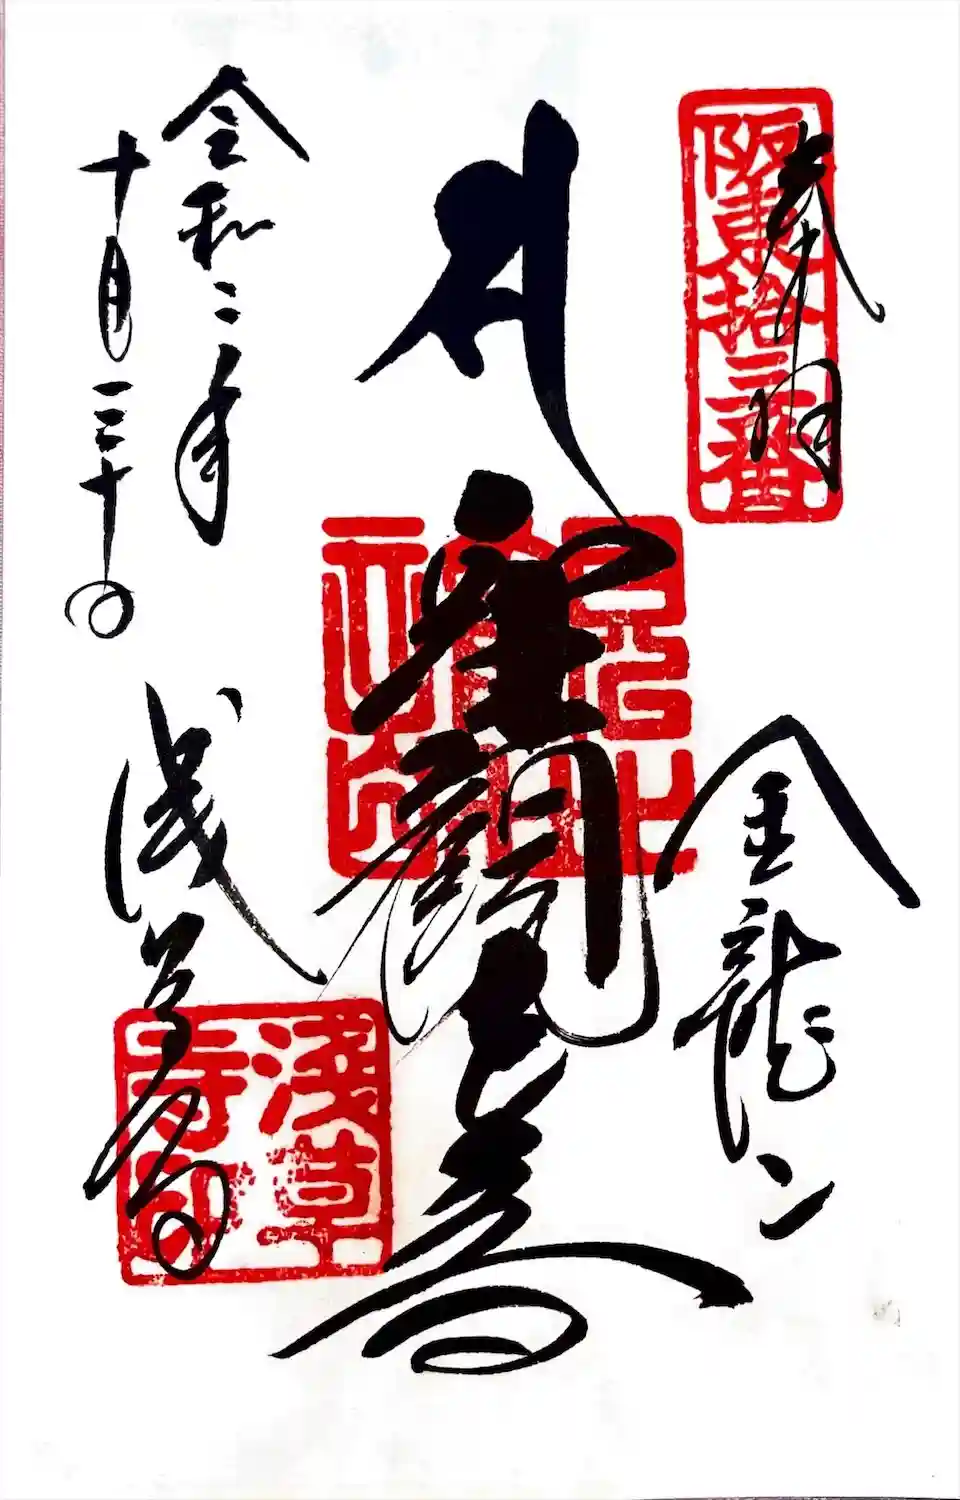 奉拝
阪東拾三番
金龍山
聖観世音
令和二年
十月三十日
浅草寺
淺草寺印